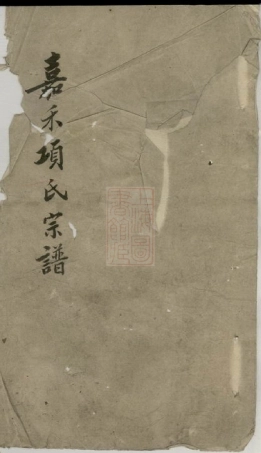 嘉禾項氏宗譜